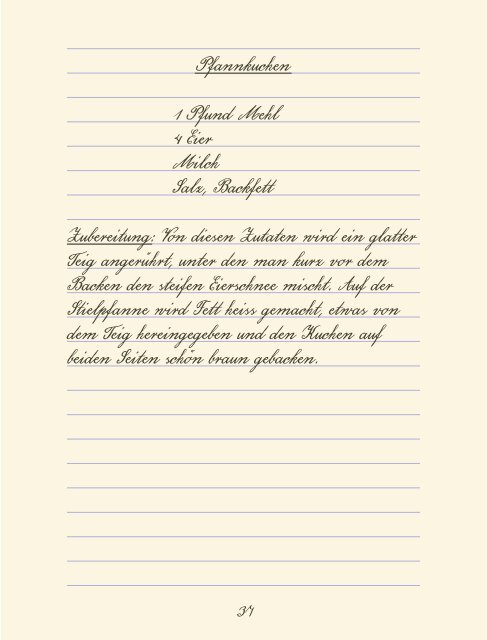 Pfannkuchen
1 Pfund Mehl
4 Eier
Milch
Salz, Backfett
Zubereitung: Von diesen Zutaten wird ein glatter
Teig angerührt, unter den man kurz vor dem
Backen den steifen Eierschnee mischt. Auf der
Stielpfanne wird Fett heiss gemacht, etwas von
dem Teig hereingegeben und den Kuchen auf
beiden Seiten schön braun gebacken.
37